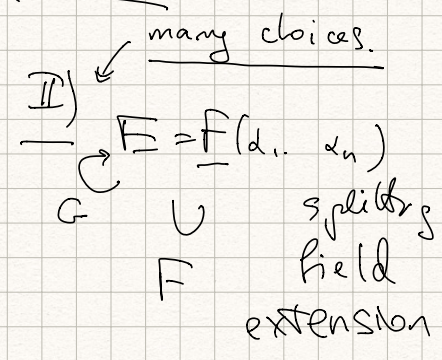 many choices.
II)
E = F(α₁.. αₙ)
G ∪ splitting
F field
extension